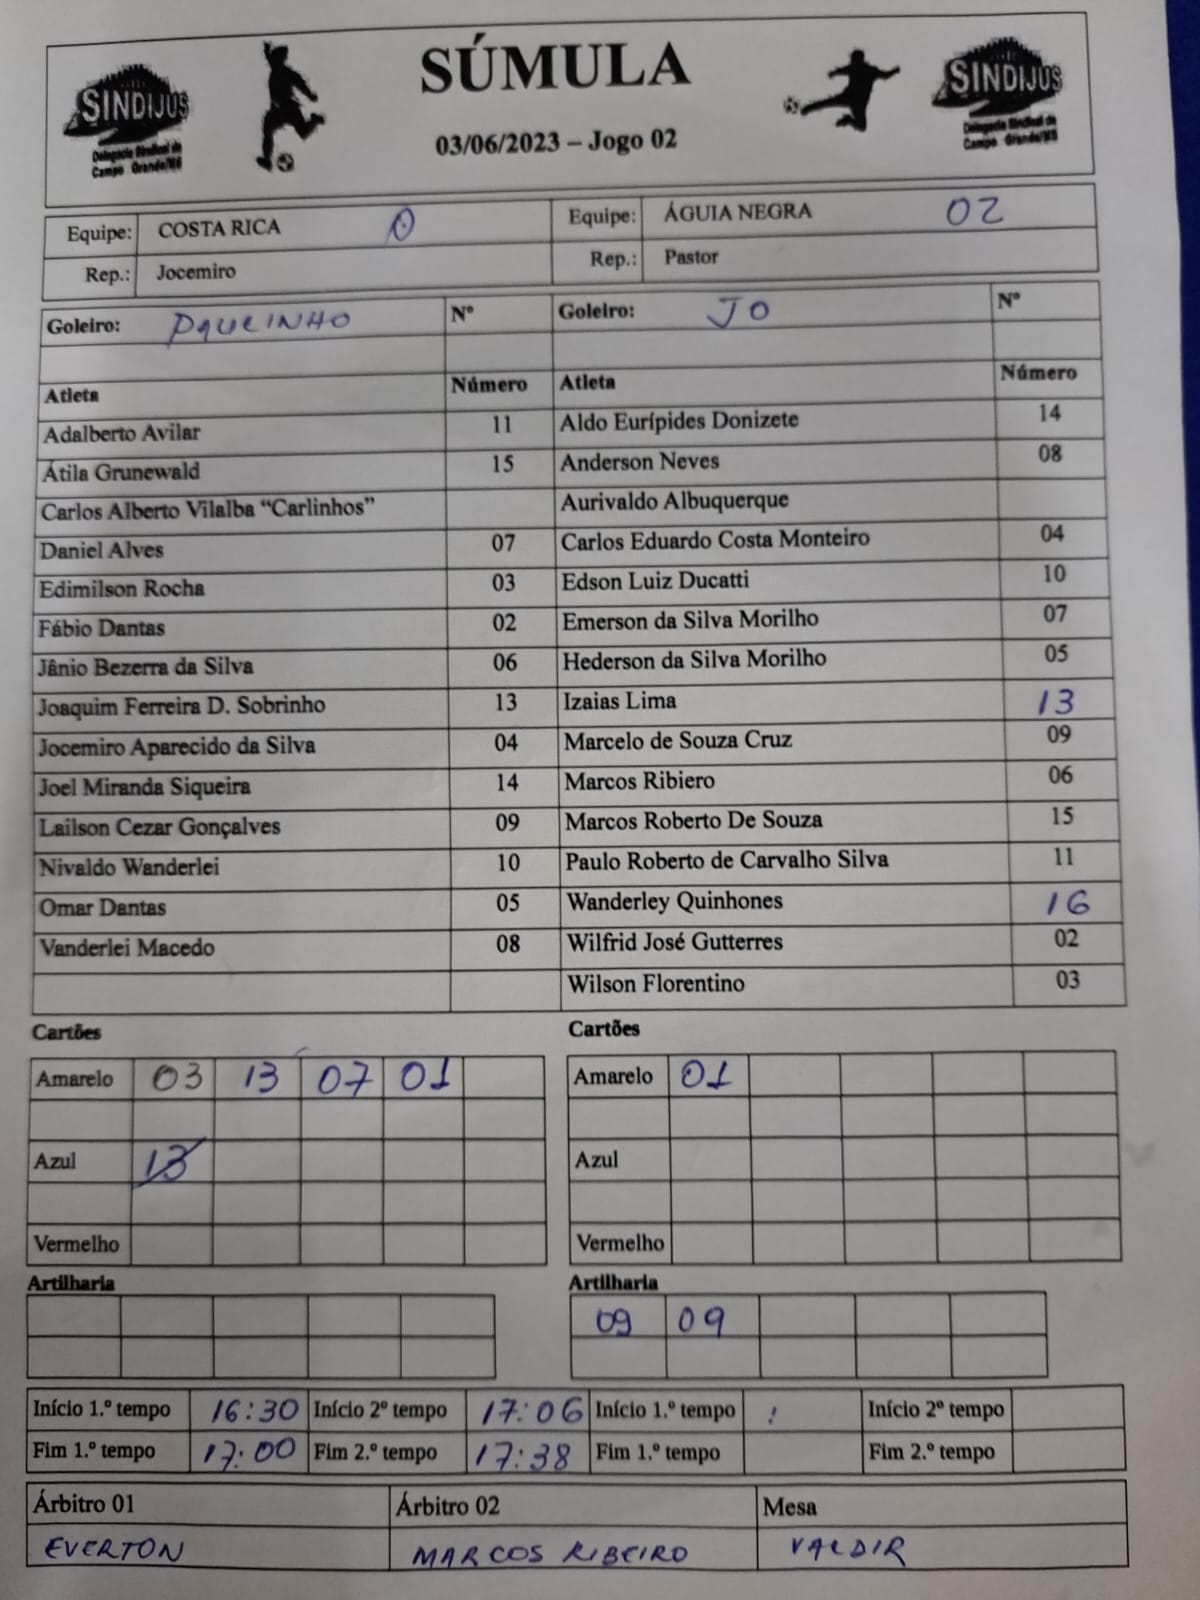 SÚMULA
SINDIJUS
Delegacia Sindical de
Campo Grande/MS
SINDIJUS
Delegacia Sindical de
Campo Grande/MS
03/06/2023 – Jogo 02
Equipe: COSTA RICA 0 Equipe: ÁGUIA NEGRA 02
Rep.: Jocemiro Rep.: Pastor
Goleiro: Nº Goleiro: JO Nº
Atleta Número Atleta Número
Adalberto Avilar 11 Aldo Eurípides Donizete 14
Átila Grunewald 15 Anderson Neves 08
Carlos Alberto Vilalba “Carlinhos” Aurivaldo Albuquerque
Daniel Alves 07 Carlos Eduardo Costa Monteiro 04
Edimilson Rocha 03 Edson Luiz Ducatti 10
Fábio Dantas 02 Emerson da Silva Morilho 07
Jânio Bezerra da Silva 06 Hederson da Silva Morilho 05
Joaquim Ferreira D. Sobrinho 13 Izaias Lima 13
Jocemiro Aparecido da Silva 04 Marcelo de Souza Cruz 09
Joel Miranda Siqueira 14 Marcos Ribiero 06
Lailson Cezar Gonçalves 09 Marcos Roberto De Souza 15
Nivaldo Wanderlei 10 Paulo Roberto de Carvalho Silva 11
Omar Dantas 05 Wanderley Quinhones 16
Vanderlei Macedo 08 Wilfrid José Gutterres 02
Wilson Florentino 03
Cartões Cartões
Amarelo 03 13 07 01 Amarelo 01
Azul 13 Azul
Vermelho Vermelho
Artilharia Artilharia
09 09
Início 1.º tempo 16:30 Início 2º tempo 17:06 Início 1.º tempo : Início 2º tempo
Fim 1.º tempo 17:00 Fim 2.º tempo 17:38 Fim 1.º tempo Fim 2.º tempo
Árbitro 01 Árbitro 02 Mesa
EVERTON MARCOS RIBEIRO VALDIR